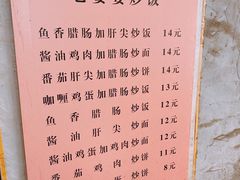 七婆婆炒饭
鱼香腊肠加肝尖炒饭 14元
酱油鸡肉加腊肠炒面 14元
番茄肝尖加腊肠炒饼 14元
咖喱鸡蛋加腊肠炒饭 13元
鱼香腊肠炒饼 12元
酱油肝尖炒面 12元
酱油鸡蛋加鸡肉炒饭 12元
番茄鸡肉炒面 11元
炒饼 8元